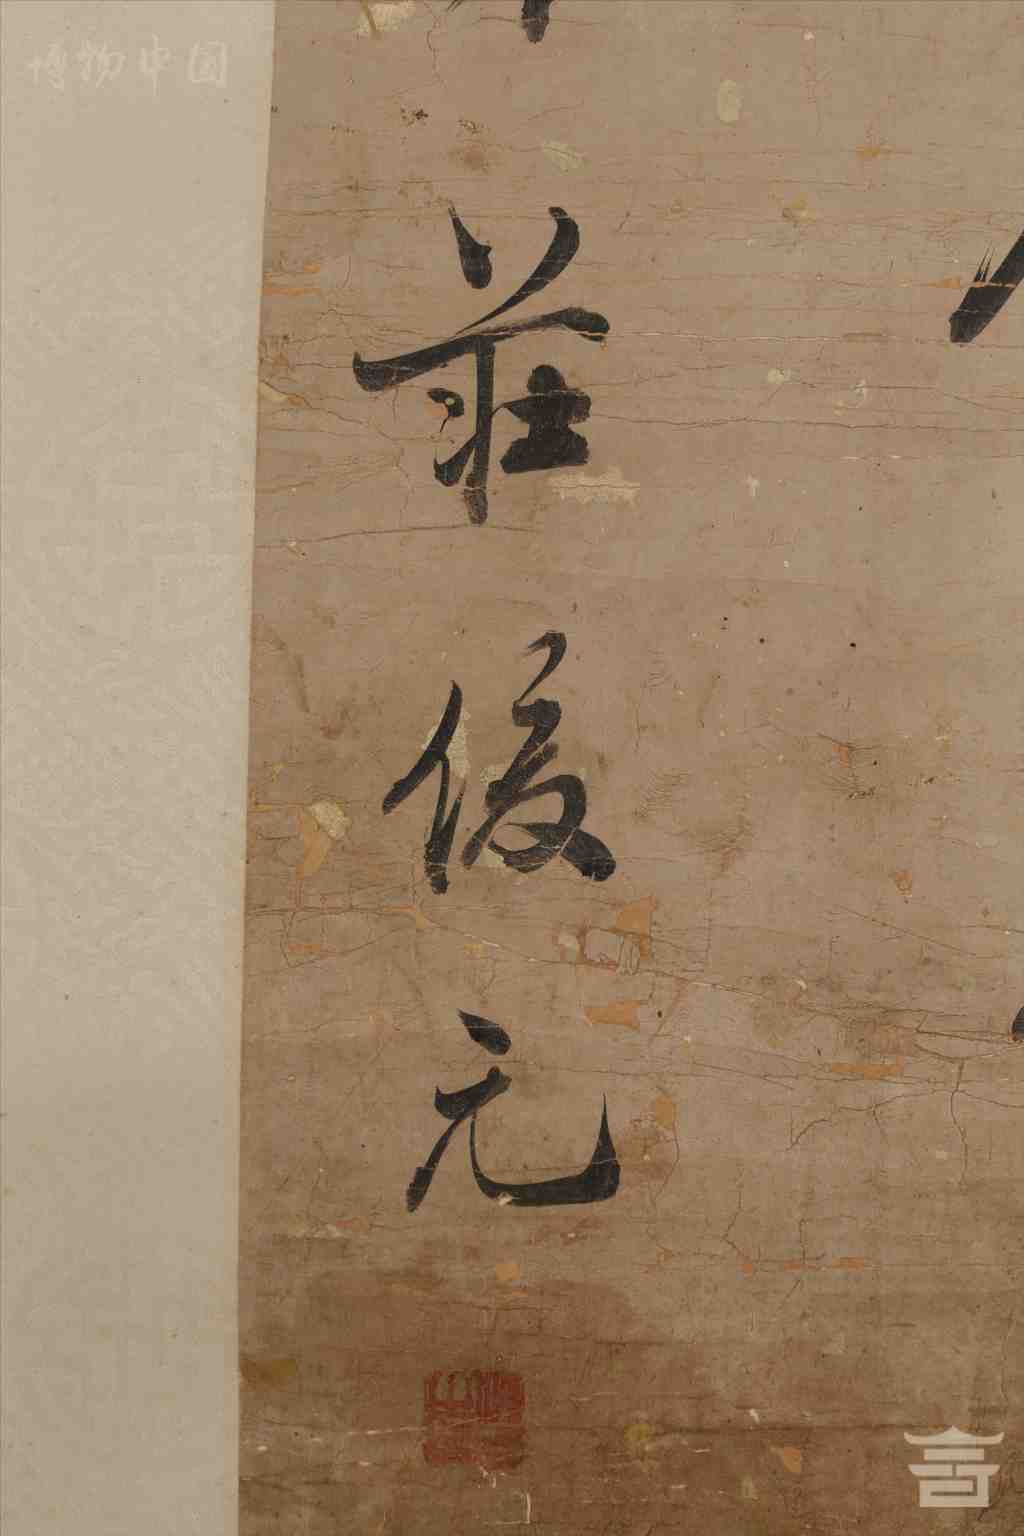 博物中国
莊俊元